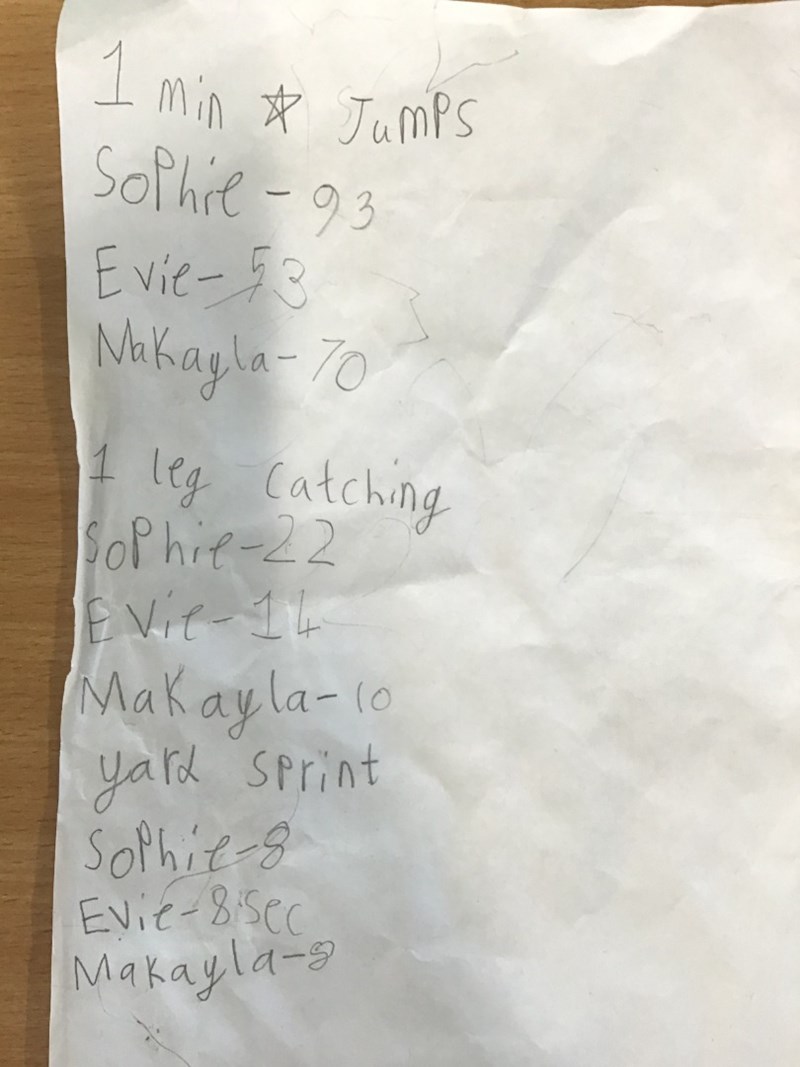 1 min ☆ Jumps
Sophie - 93
Evie - 53
Makayla - 70
1 leg catching
Sophie - 22
Evie - 14
Makayla - 10
yard sprint
Sophie - 8
Evie - 8 sec
Makayla - 8